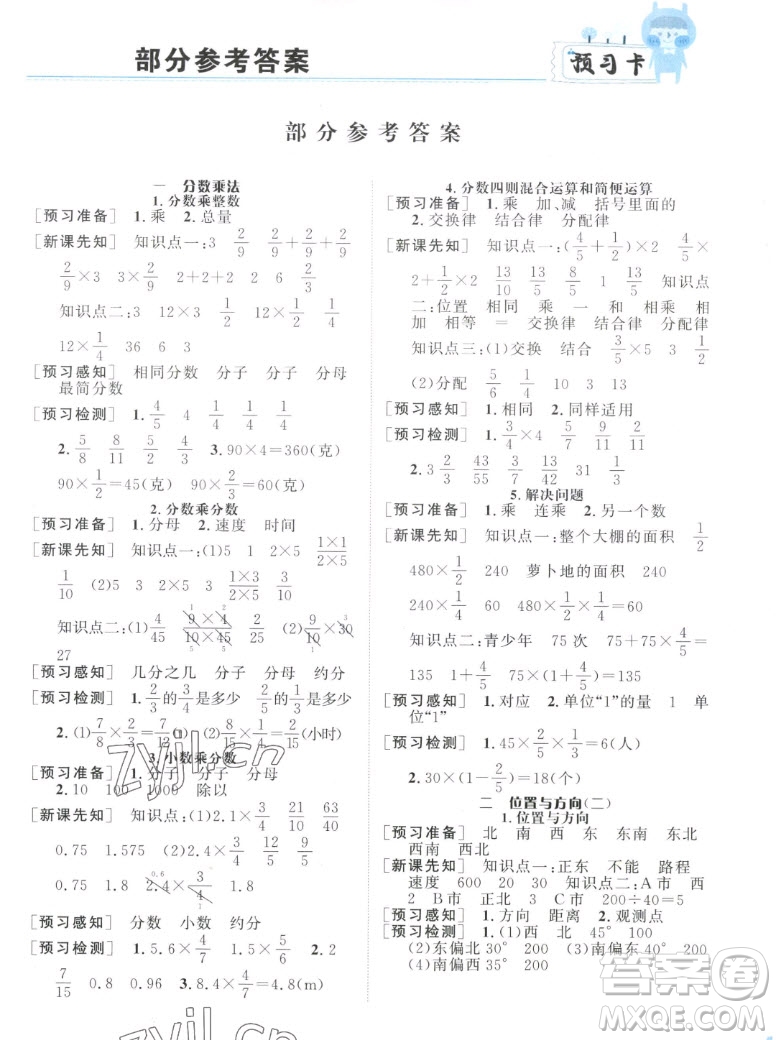 部分参考答案
预习卡
部分参考答案
一 分数乘法
1.分数乘整数
[预习准备] 1.乘 2.总量
[新课先知] 知识点一:3 2/9 2/9+2/9+2/9
2/9×3 3×2/9 2+2+2 2 6 2/3
知识点二:3 12×3 1/2 12×1/2 1/4
12×1/4 36 6 3
[预习感知] 相同分数 分子 分子 分母
最简分数
[预习检测] 1.4/5 4 1/4 1/4 1/4
2.5/8 8/11 5/2 2/5 3.90×4=360(克)
90×1/2=45(克) 90×2/3=60(克)
2.分数乘分数
[预习准备] 1.分母 2.速度 时间
[新课先知] 知识点一:(1)5 1 2×5 1×1/2×5
1/10 (2)5 3 2×5 1×3/2×5 3/10
知识点二:(1)4/45 9×4/10×45 2/25 (2)9/10×30
27
[预习感知] 几分之几 分子 分母 约分
[预习检测] 1.2/3的3/4是多少 2/3 3/4 1/2
2.(1)7/8×2/3=7/12(公顷) (2)2/5×1/3=2/15(小时)
3.小数乘分数
[预习准备] 1.分子 分子 分母
2.10 100 1000 除以
[新课先知] 知识点:(1)2.1×3/4 21/10 63/40
0.75 1.575 (2)2.4×3/4 12/5 9/5
0.75 1.8 2.4×3/4 1.8
[预习感知] 分数 小数 约分
[预习检测] 1.5.6×4/7 4/9 1.5×5/6 2.2
7/15 0.8 0.96 3.8.4×4/7=4.8(m)
4.分数四则混合运算和简便运算
[预习准备] 1.乘 加、减 括号里面的
2.交换律 结合律 分配律
[新课先知] 知识点一:(4/5+1/2)×2 4/5×
2+1/2×2 13/10 13/5 8/5 1 13/5 知识点
二:位置 相同 乘 一 和 相乘 相
加 相等 = 交换律 结合律 分配律
知识点三:(1)交换 结合 3/5×5 3 1/2
(2)分配 5/6 1/4 10 3 13
[预习感知] 1.相同 2.同样适用
[预习检测] 1.1/3×4 4/5 5/6 5/7 2/7
2.3 2/3 43/55 33/35 31/2 1/6
5.解决问题
[预习准备] 1.乘 连乘 2.另一个数
[新课先知] 知识点一:整个大棚的面积 1/2
480×1/2 240 萝卜地的面积 240
240×1/4=60 480×1/2×1/4=60
知识点二:青少年 75次 75+75×4/5=
135 1+4/5 75×(1+4/5)=135
[预习感知] 1.对应 2.单位“1”的量 1 单
位“1”
[预习检测] 1.45×2/9×3/5=6(人)
2.30×(1-2/5)=18(个)
二 位置与方向(二)
1.位置与方向
[预习准备] 北 南 西 东 东南 东北
西南 西北
[新课先知] 知识点一:正东 不能 路程
速度 600 20 30 知识点二:A市 西
2 B市 西 2 C市 200÷40=5
[预习感知] 1.方向 距离 2.观测点
[预习检测] 1.(1)西 北 45° 400
(2)东偏北 30° 200 (3)南偏东 40° 400
(4)南偏西35° 200
zyjl.cn
zyjl.cn
答案圈
MXQE.COM